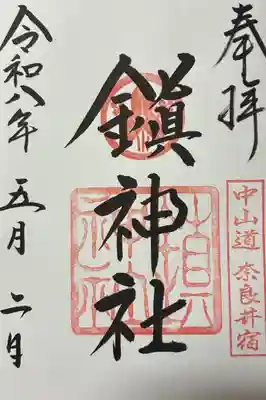 奉拝
中山道 奈良井宿
鎮神社
令和八年 五月 二日